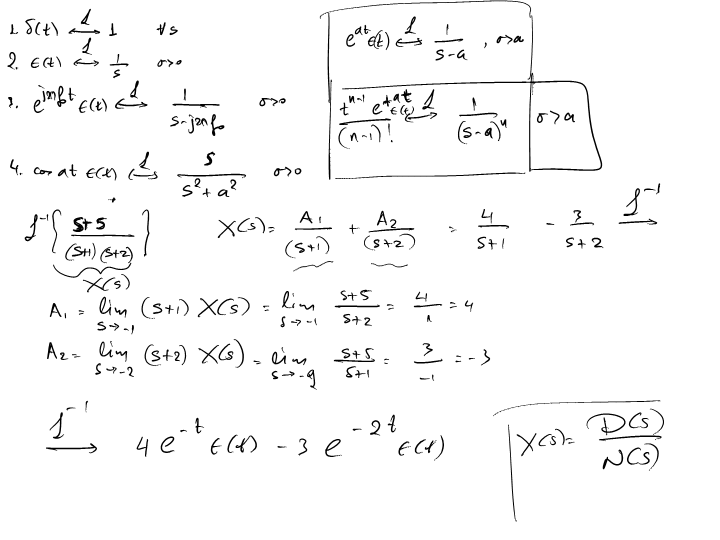 1. δ(t) ↔ℒ 1 ∀s
2. ε(t) ↔ℒ 1/s σ>0
3. e^{j2πf₀t} ε(t) ↔ℒ 1/(s-j2πf₀) σ>0
4. cos at ε(t) ↔ℒ s/(s²+a²) σ>0
e^{at} ε(t) ↔ℒ 1/(s-a), σ>a
t^{n-1} e^{+at} ε(t)/(n-1)! ↔ℒ 1/(s-a)^n σ>a
ℒ⁻¹{ (s+5)/((s+1)(s+2)) } X(s) = A₁/(s+1) + A₂/(s+2) = 4/(s+1) - 3/(s+2) ℒ⁻¹→
X(s)
A₁ = lim_{s→-1} (s+1) X(s) = lim_{s→-1} (s+5)/(s+2) = 4/1 = 4
A₂ = lim_{s→-2} (s+2) X(s) = lim_{s→-2} (s+5)/(s+1) = 3/-1 = -3
ℒ⁻¹→ 4 e^{-t} ε(t) - 3 e^{-2t} ε(t)
X(s) = D(s)/N(s)